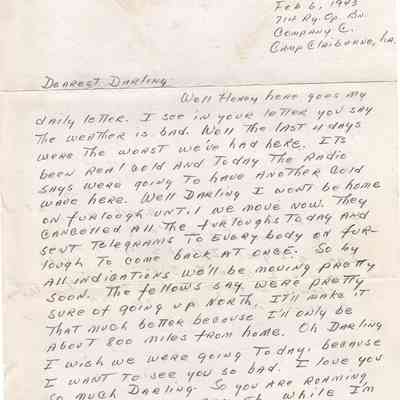 Feb 6, 1943
714 Ry. Op. Bn.
Company C.
Camp Claiborne, La.
Dearest Darling
Well Honey here goes my
daily letter. I see in your letter you say
the weather is bad. Well the last 4 days
were the worst we've had here. Its
been real cold and today the radio
says were going to have another cold
wave here. Well Darling I wont be home
on furlough until we move now. They
cancelled all the furloughs today and
sent telegrams to every body on fur-
lough to come back at once. So by
all indications we'll be moving pretty
soon. The fellows say were pretty
sure of going up north. It'll make it
that much better because I'll only be
about 800 miles from home. Oh Darling
I wish we were going today, because
I want to see you so bad. I love you
so much Darling. So you are roaming
while I'm